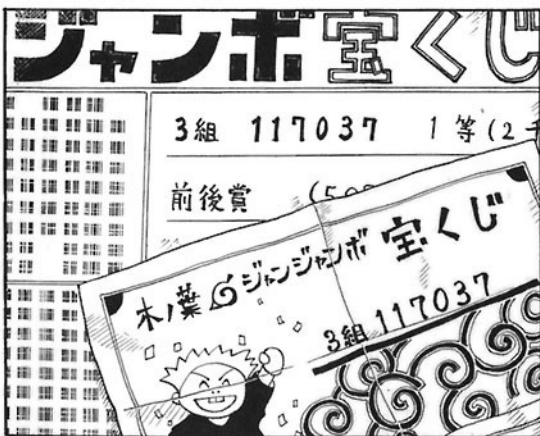 ジャンボ宝くじ
3組 117037 1等(2千
前後賞 (50
木ノ葉 ジャンジャンボ 宝くじ
3組 117037